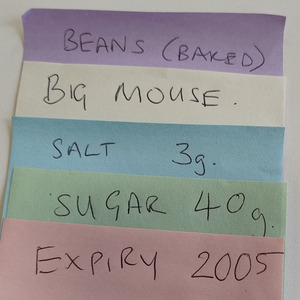 BEANS (BAKED)
BIG MOUSE.
SALT 3g.
SUGAR 40g.
EXPIRY 2005